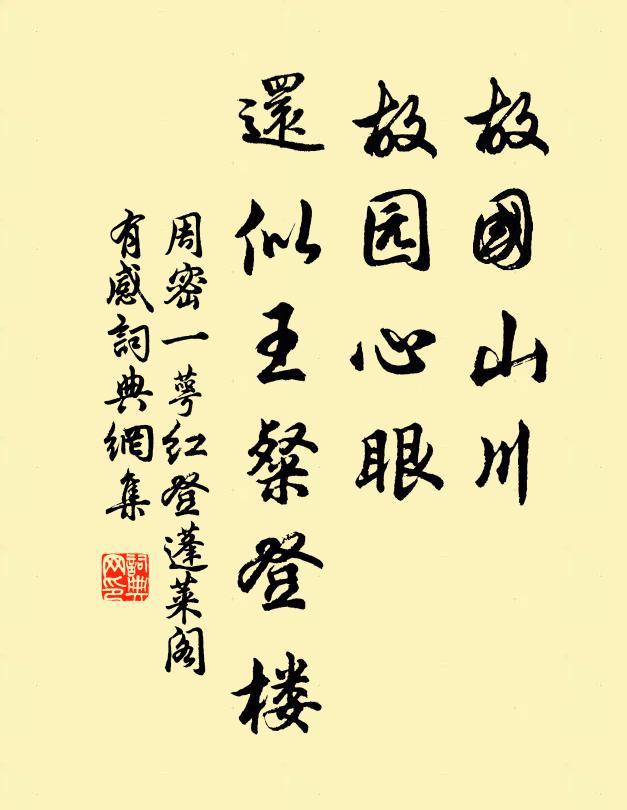 故國山川
故园心眼
還似王粲登楼
周密一萼红登蓬莱阁
有感詞典網集
詞典
网印